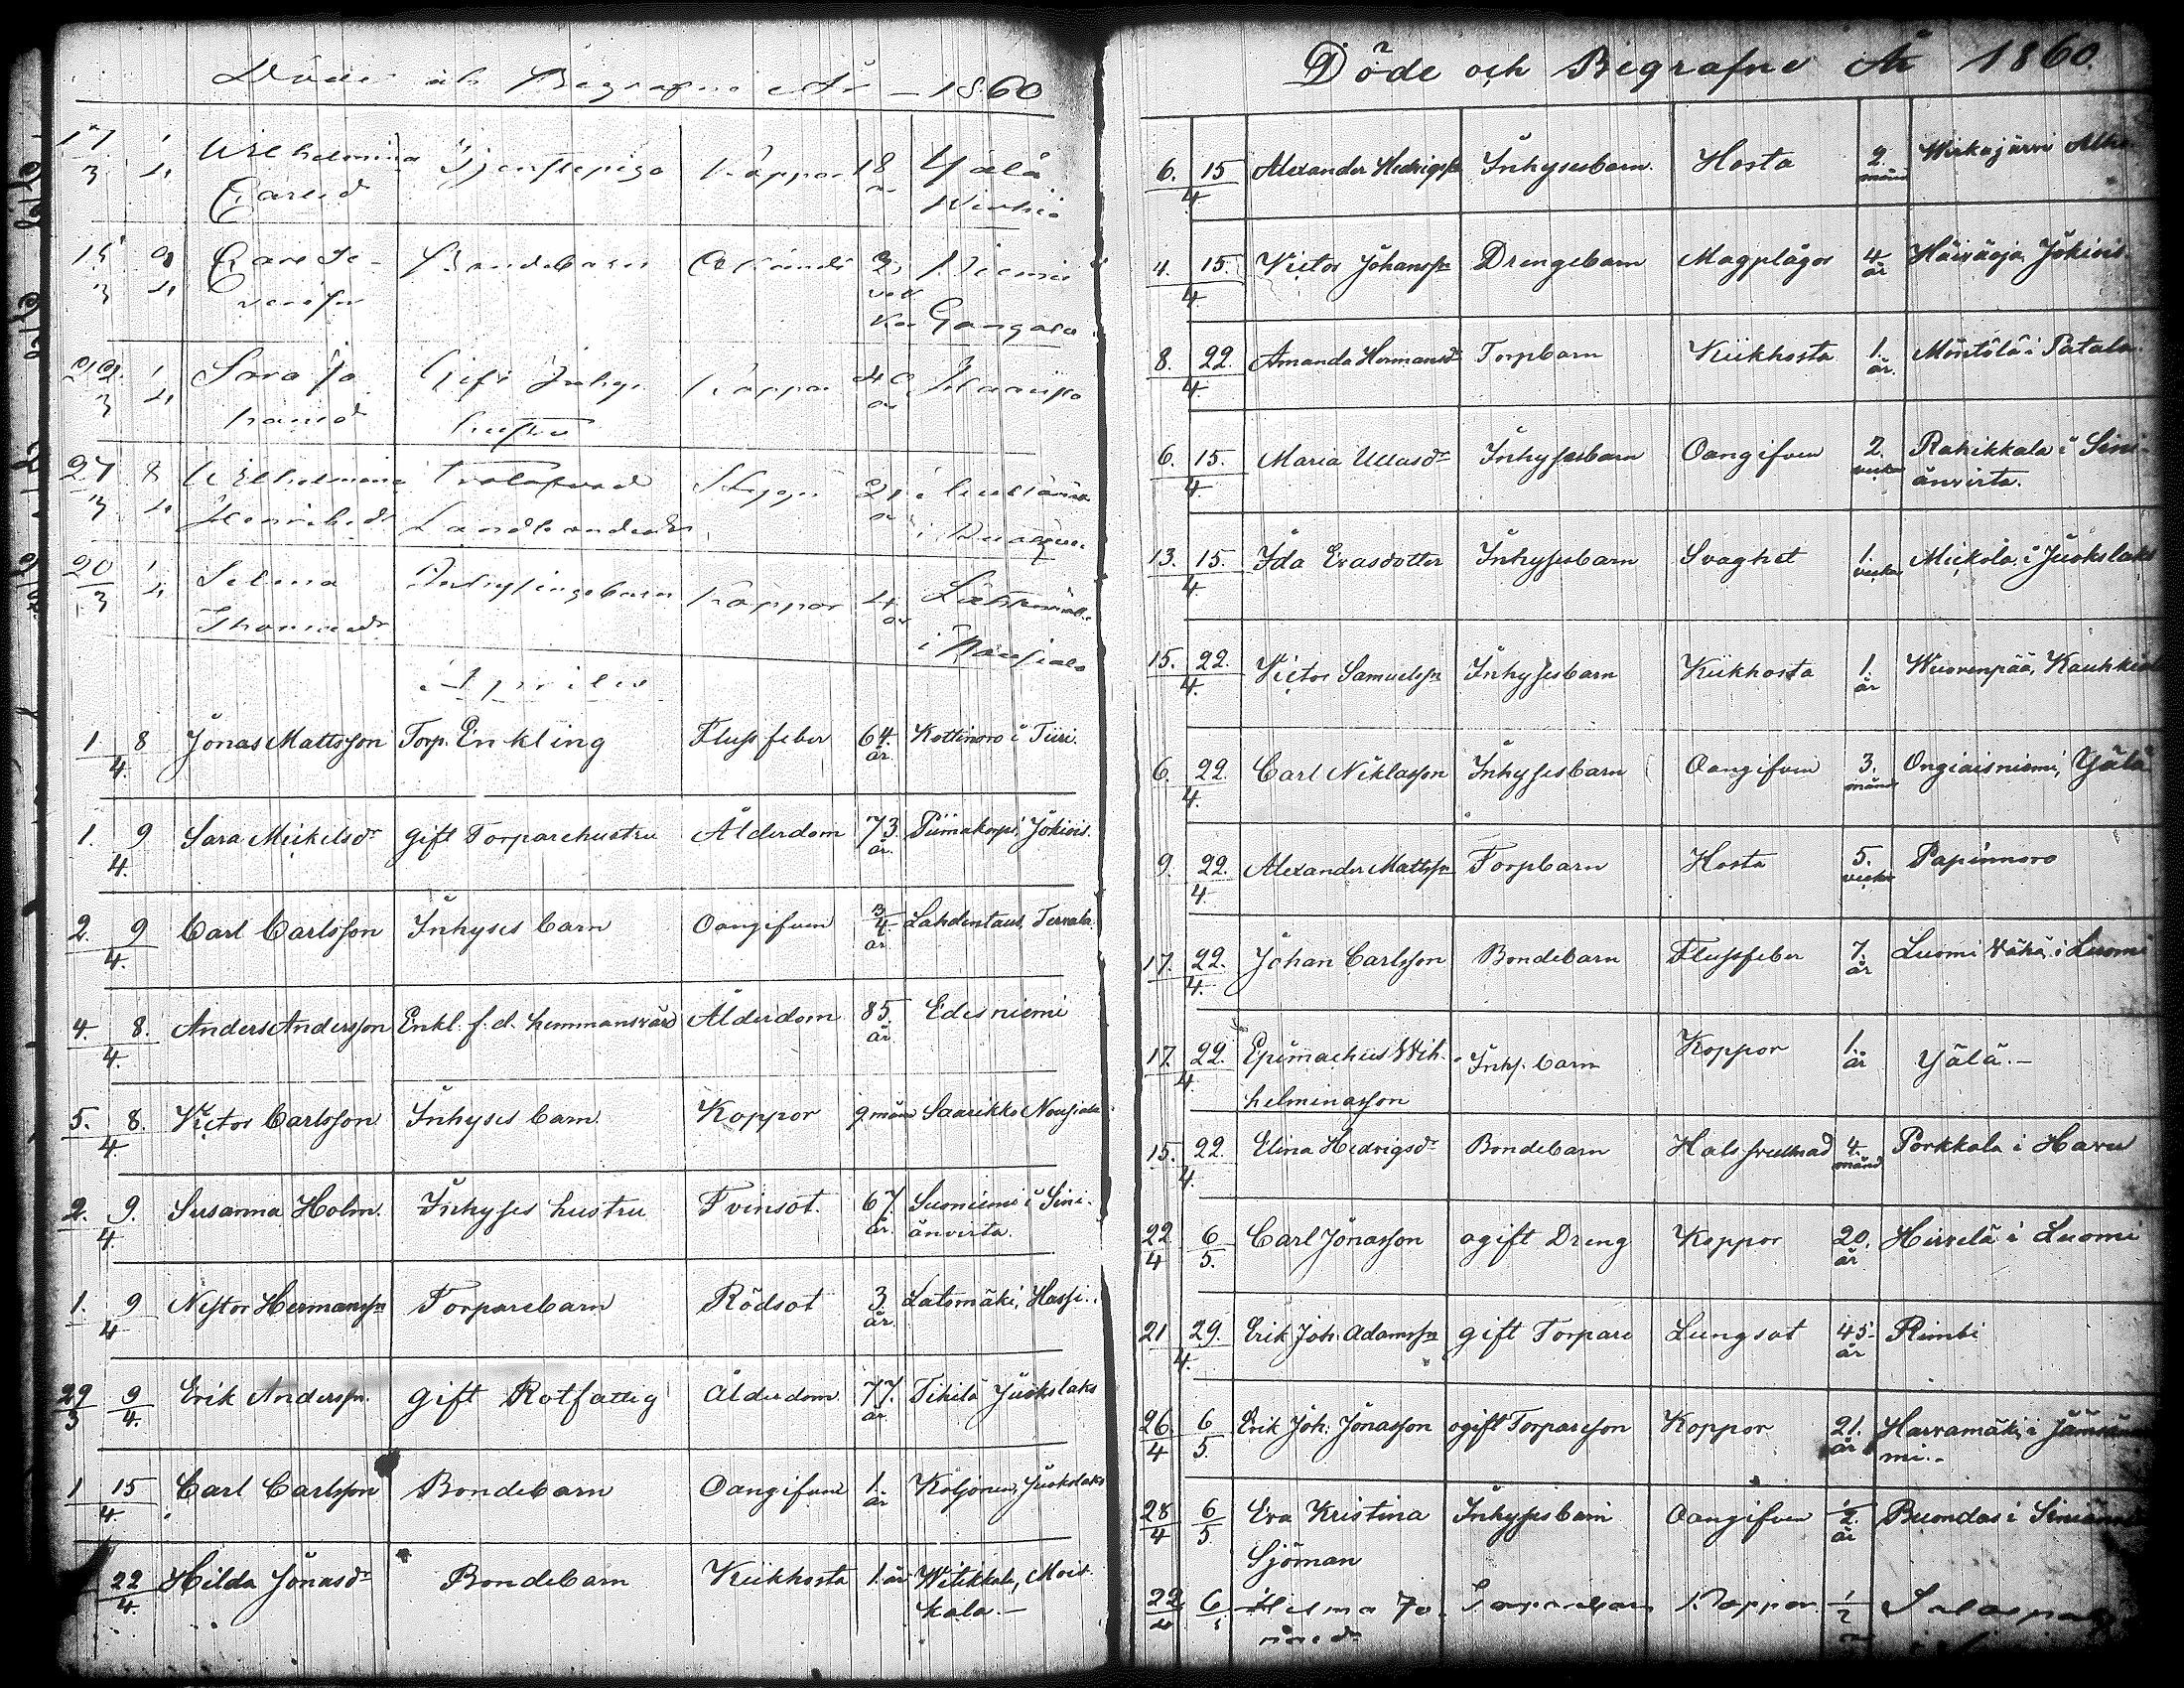 Döde och Begrafne År 1860
17/3 1/4 Wilhelmina Tjenstepiga Koppor 18 år Yälä
Carlsd
15/3 9/4 Carl Bondebarn Okänd 3 Niemis
veckor
22/3 1/4 Sara Jo- Gift Inhys. Koppor 40 år
hansd hustru
27/3 8/4 Wilhelmina 21 år
Henriksdr
20/3 1/4 Selma Inhysingebarn Koppor 4 år
Thomasdr i Nousiala
Aprilis
1. 8/4. Jonas Mattsson Torp. Enkling Flussfeber 64. år. Kottinoro i Tiiri.
1. 9/4. Sara Mickelsdr gift Torparehustru Ålderdom 73. år. Piimakorpi, Jokiois.
2. 9/4. Carl Carlsson Inhyses barn Oangifven 3/4 år Lahdentaus, Tervala.
4. 8./4. Anders Andersson Enkl. f.d. hemmansvärd Ålderdom 85. år. Edesniemi
5. 8./4. Victor Carlsson Inhyses barn Koppor 9 mån Saarikko Nousiala.
2. 9./4. Susanna Holm. Inhyses hustru Tvinsot. 67. år. Suoniemi i Sini-
änvirta.
1. 9/4 Nestor Hermanssn Torparebarn Rödsot 3 år. Latomäki, Hassi.
29/3 9/4. Erik Anderssn. gift Rotfattig Ålderdom 77. år Tihilä Juokslaks
1 15/4 Carl Carlsson Bondebarn Oangifven 1. år Koljonen, Juokslaks
22/4. Hilda Jonasdr Bondebarn Kikhosta 1. år Witikkala, Mois-
kala.-
Döde och Begrafne År 1860.
6. 15/4 Alexander Hedrigssn Inhysesbarn. Hosta 2. månd Wirkajärvi
4. 15./4. Victor Johanssn Drengebarn Magplågor 4 år Häiväoja, Jokiois.
8. 22./4. Amanda Hermansdr Torpbarn Kikhosta 1. år. Möntölä i Patala.
6. 15./4. Maria Ullasdr Inhysesbarn Oangifven 2. veckor Rahikkala i Sini-
änvirta.
13. 15./4. Ida Evasdotter Inhysesbarn Svaghet 1. vecka Mickola i Juokslaks
15. 22./4. Victor Samuelssn Inhysesbarn Kikhosta 1. år Wuorenpää,
6. 22./4. Carl Niklasson Inhysesbarn Oangifven 3. månd Ongiaisniemi, Yälä
9. 22./4. Alexander Mattssn Torpbarn Hosta 5. veckor Papinnoro
17. 22./4. Johan Carlsson Bondebarn Flussfeber 7. år Luomi Vähä i Luomi
17. 22./4. Epimachus Wil- Inhs. barn Koppor 1. år Yälä.-
helminasson
15. 22./4. Elina Hedvigsdr Bondebarn Halssvullnad 4. månd Porkkala i Havu
22/4 6/5. Carl Jonasson ogift Dreng Koppor 20. år Hirvelä i Luomi
21 29./4. Erik Joh. Adamssn gift Torpare Lungsot 45 år Rimbi
26./4 6/5. Erik Joh. Jonasson ogift Torpareson Koppor 21. år Harramäki i
mi.-
28/4 6/5. Eva Kristina Inhysesbarn Oangifven 1/2. år Buondas i
Sjöman
22/4 6/5 Torparebarn Koppor 1/2 år